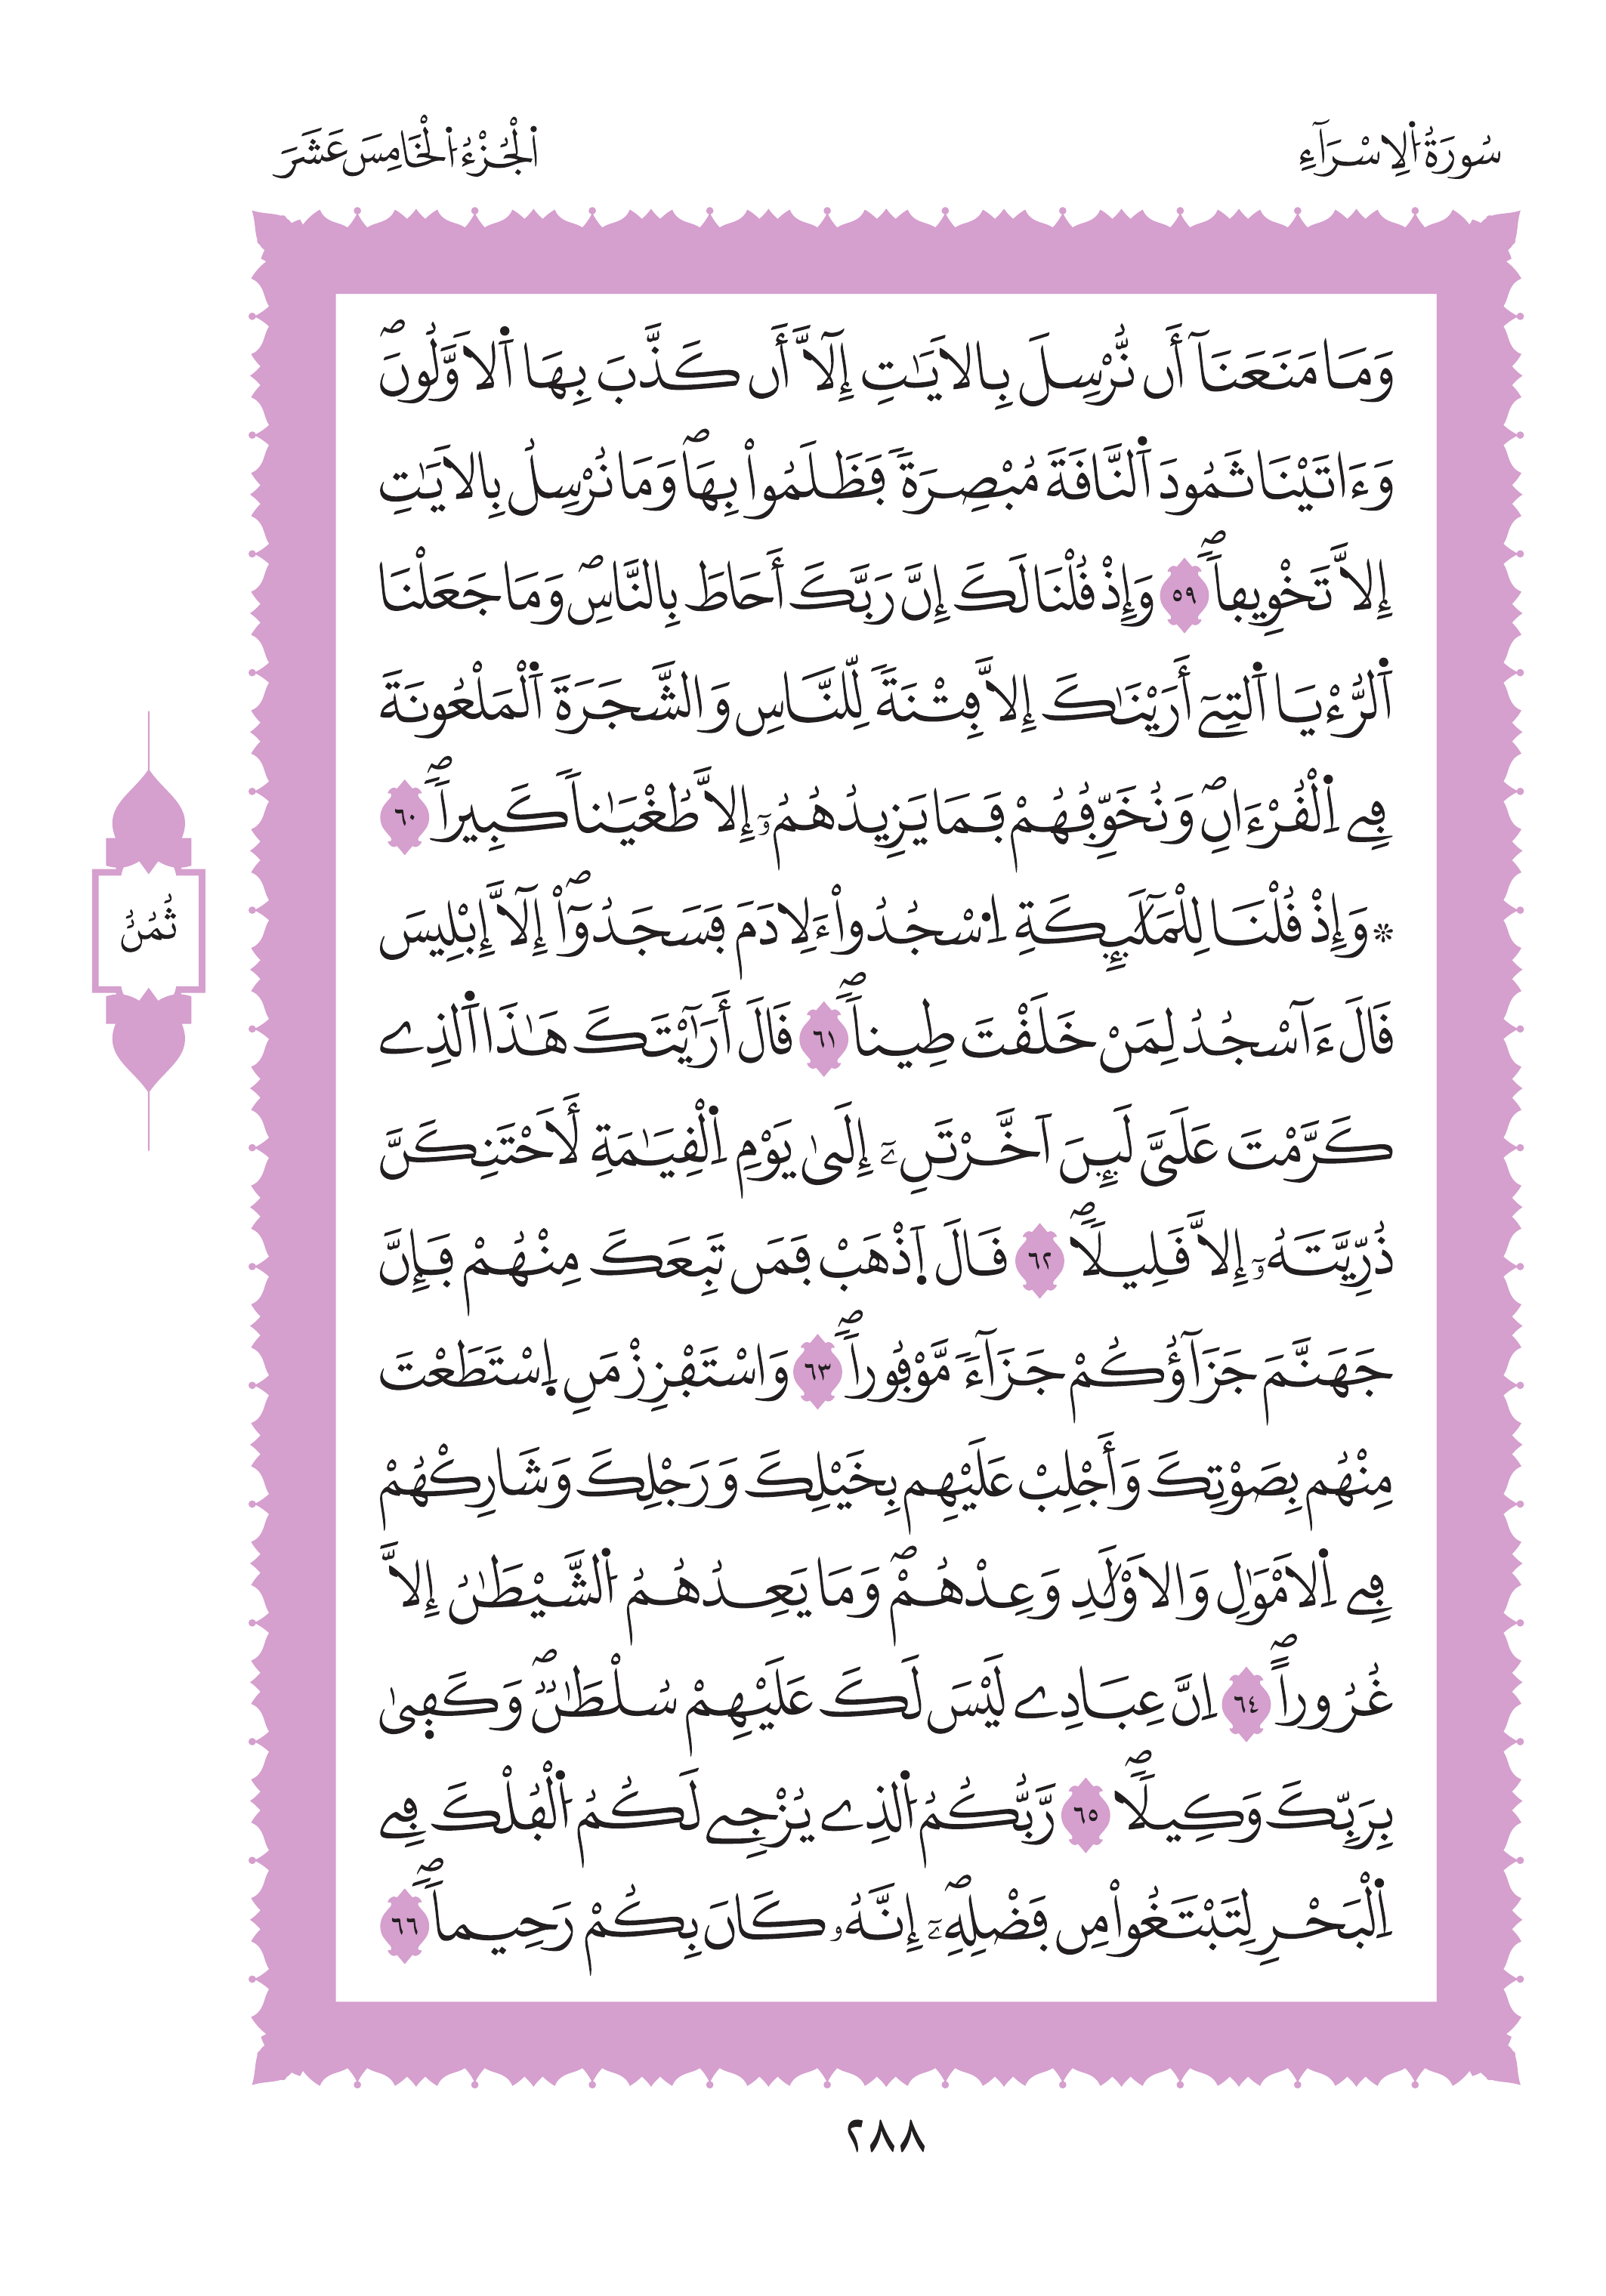 سُورَةُ اُ۬لِاسْرَآءِ
اَ۬لْجُزْءُ اُ۬لْخَامِسَ عَشَرَ
وَمَا مَنَعَنَآ أَن نُّرْسِلَ بِالاَيَٰتِ إِلَّآ أَن كَذَّبَ بِهَا اَ۬لاَوَّلُونَۖ
وَءَاتَيْنَا ثَمُودَ اَ۬لنَّاقَةَ مُبْصِرَةٗ فَظَلَمُواْ بِهَاۖ وَمَا نُرْسِلُ بِالاَيَٰتِ
إِلَّا تَخْوِيفاٗۖ ٥٩ وَإِذْ قُلْنَا لَكَ إِنَّ رَبَّكَ أَحَاطَ بِالنَّاسِۖ وَمَا جَعَلْنَا
اَ۬لرُّءْيَا اَ۬لتِےٓ أَرَيْنَٰكَ إِلَّا فِتْنَةٗ لِّلنَّاسِ وَالشَّجَرَةَ اَ۬لْمَلْعُونَةَ
فِے اِ۬لْقُرْءَانِۖ وَنُخَوِّفُهُمْ فَمَا يَزِيدُهُمُۥٓ إِلَّا طُغْيَٰناٗ كَبِيراٗۖ ٦٠
۞وَإِذْ قُلْنَا لِلْمَلَٰٓئِكَةِ اِ۟سْجُدُواْ ءَلِادَمَ فَسَجَدُوٓاْۖ إِلَّآ إِبْلِيسَ
قَالَ ءَآسْجُدُ لِمَنْ خَلَقْتَ طِيناٗۖ ٦١ قَالَ أَرَٰٓيْتَكَ هَٰذَا اَ۬لذِے
كَرَّمْتَ عَلَيَّ لَئِنَ اَخَّرْتَنِۦٓ إِلَىٰ يَوْمِ اِ۬لْقِيَٰمَةِ لَأَحْتَنِكَنَّ
ذُرِّيَّتَهُۥٓ إِلَّا قَلِيلاٗۖ ٦٢ قَالَ اَ۪ذْهَبْ فَمَن تَبِعَكَ مِنْهُمْ فَإِنَّ
جَهَنَّمَ جَزَآؤُكُمْ جَزَآءٗ مَّوْفُوراٗۖ ٦٣ وَاسْتَفْزِزْ مَنِ اِ۪سْتَطَعْتَ
مِنْهُم بِصَوْتِكَ وَأَجْلِبْ عَلَيْهِم بِخَيْلِكَ وَرَجْلِكَ وَشَارِكْهُمْ
فِے اِ۬لاَمْوَٰلِ وَالاَوْلَٰدِ وَعِدْهُمْۖ وَمَا يَعِدُهُمُ اُ۬لشَّيْطَٰنُ إِلَّا
غُرُوراًۖ ٦٤ اِنَّ عِبَادِے لَيْسَ لَكَ عَلَيْهِمْ سُلْطَٰنٞۖ وَكَف۪ىٰ
بِرَبِّكَ وَكِيلاٗۖ ٦٥ رَّبُّكُمُ اُ۬لذِے يُزْجِے لَكُمُ اُ۬لْفُلْكَ فِے
اِ۬لْبَحْرِ لِتَبْتَغُواْ مِن فَضْلِهِۦٓۖ إِنَّهُۥ كَانَ بِكُمْ رَحِيماٗۖ ٦٦
ثُمُنُ
٢٨٨